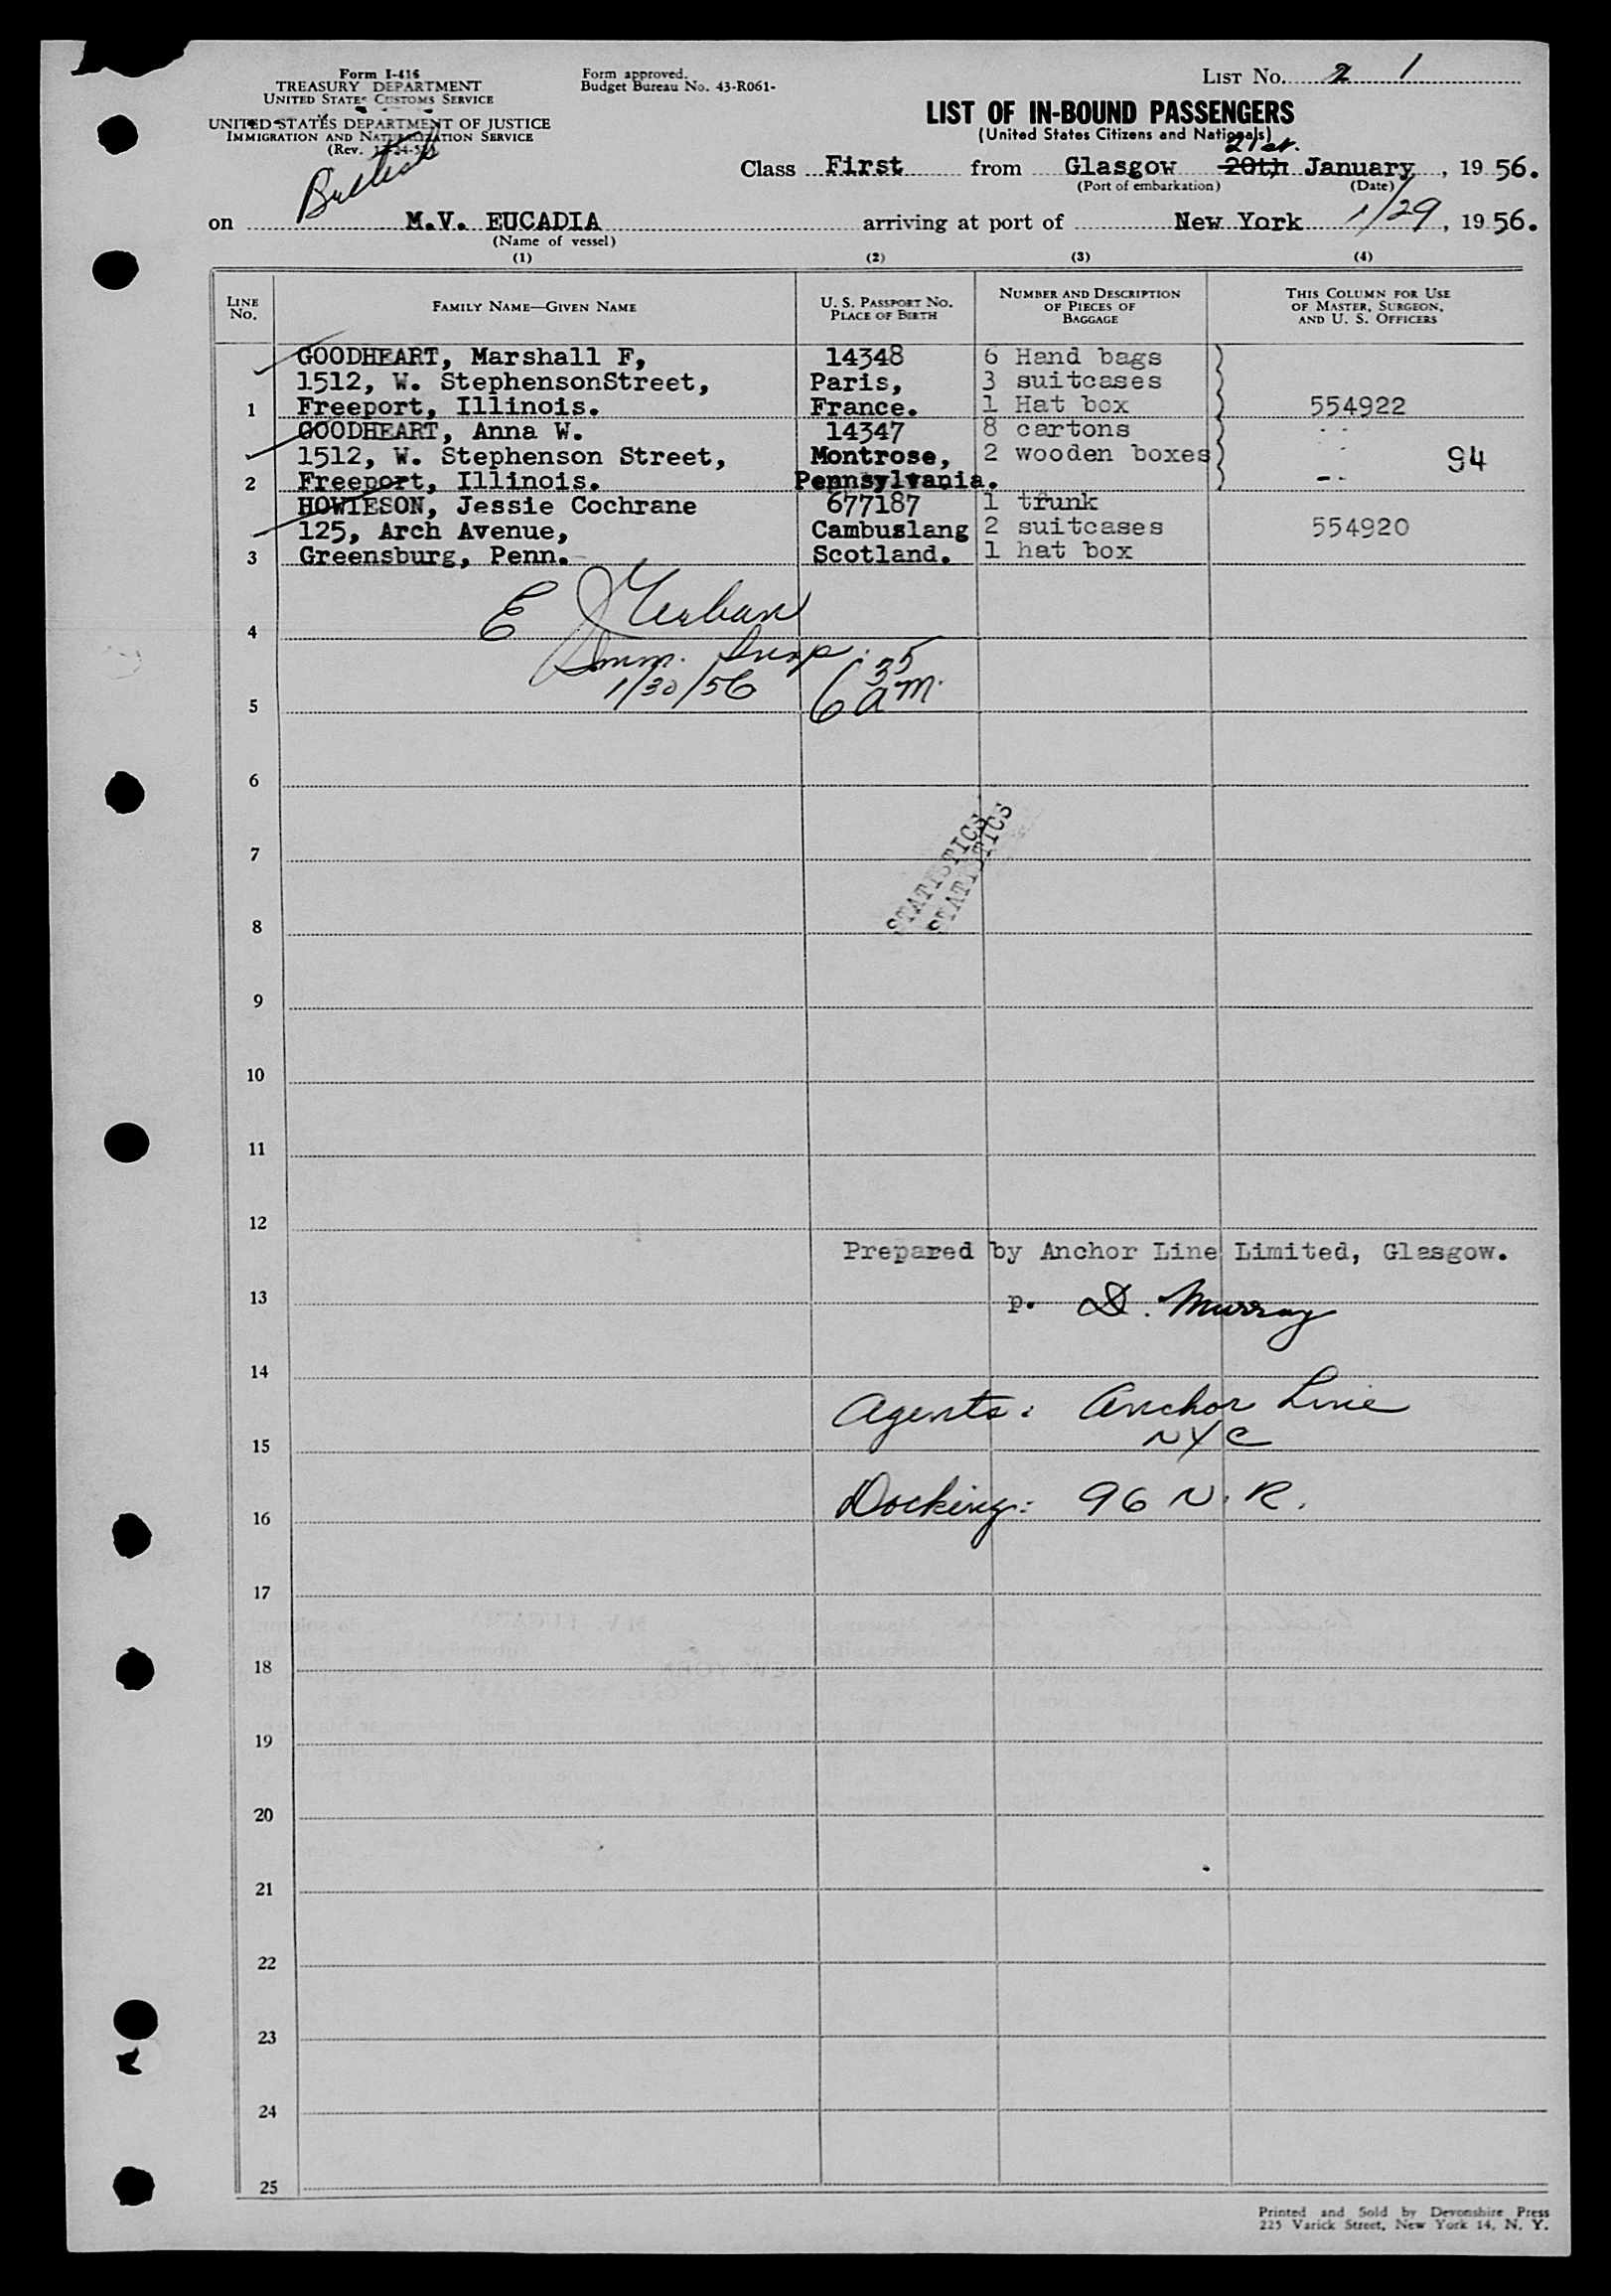 Form I-416
TREASURY DEPARTMENT
UNITED STATES CUSTOMS SERVICE
UNITED STATES DEPARTMENT OF JUSTICE
IMMIGRATION AND NATURALIZATION SERVICE
(Rev.
British
Form approved.
Budget Bureau No. 43-R061-
LIST NO. 2 1
LIST OF IN-BOUND PASSENGERS
(United States Citizens and Nationals)
21st.
Class First from Glasgow 20th January, 1956.
(Port of embarkation) (Date)
on M.V. EUCADIA arriving at port of New York 1/29, 1956.
(Name of vessel)
(1) (2) (3) (4)
LINE NO. FAMILY NAME—GIVEN NAME U. S. PASSPORT NO. PLACE OF BIRTH NUMBER AND DESCRIPTION OF PIECES OF BAGGAGE THIS COLUMN FOR USE OF MASTER, SURGEON, AND U. S. OFFICERS
GOODHEART, Marshall F, 14348 6 Hand bags
1512, W. StephensonStreet, Paris, 3 suitcases
1 Freeport, Illinois. France. 1 Hat box 554922
GOODHEART, Anna W. 14347 8 cartons
1512, W. Stephenson Street, Montrose, 2 wooden boxes 94
2 Freeport, Illinois. Pennsylvania.
HOWIESON, Jessie Cochrane 677187 1 trunk
125, Arch Avenue, Cambuslang 2 suitcases 554920
3 Greensburg, Penn. Scotland. 1 hat box
E
4
Imm. Insp.
1/30/56 6 35 am.
5
6
STATISTICS
STATISTICS
7
8
9
10
11
12
Prepared by Anchor Line Limited, Glasgow.
13 p. D. Murray
14
Agents: Anchor Line
NYC
15
Docking: 96 N. R.
16
17
18
19
20
21
22
23
24
25
Printed and Sold by Devonshire Press
225 Varick Street, New York 14, N. Y.